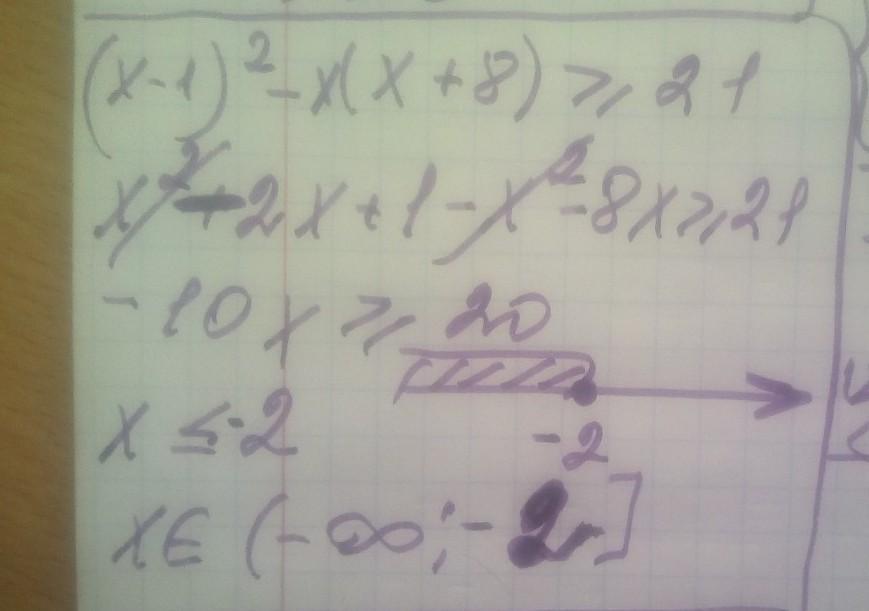 (x-1)² -x(x+8) ⩾ 21
x² -2x+1-x²-8x⩾21
-10x ⩾ 20
x ≤ -2
-2
x∈ (-∞;-2]